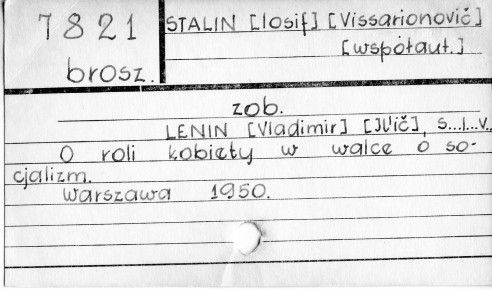 7821
brosz.
STALIN [Iosif] [Vissarionovič]
[współaut.]
zob.
LENIN [Vladimir] [Il'ič], S...I..V..
O roli kobiety w walce o so-
cjalizm.
Warszawa 1950.